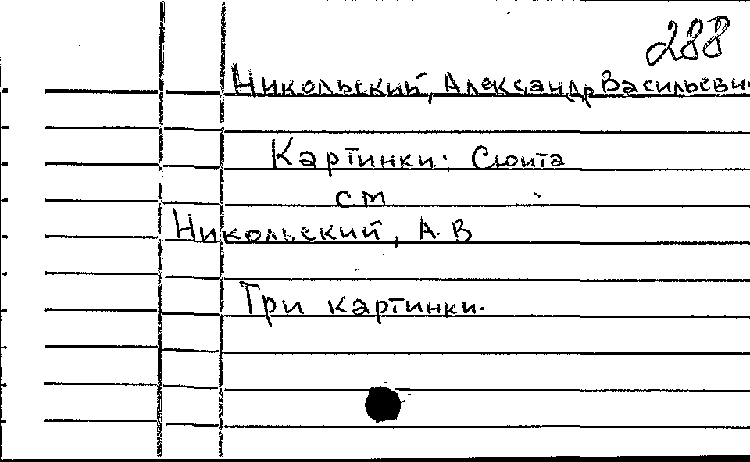 288
Никольский, Александр Васильеви
Картинки: Сюита
см
Никольский, А. В
Три картинки.